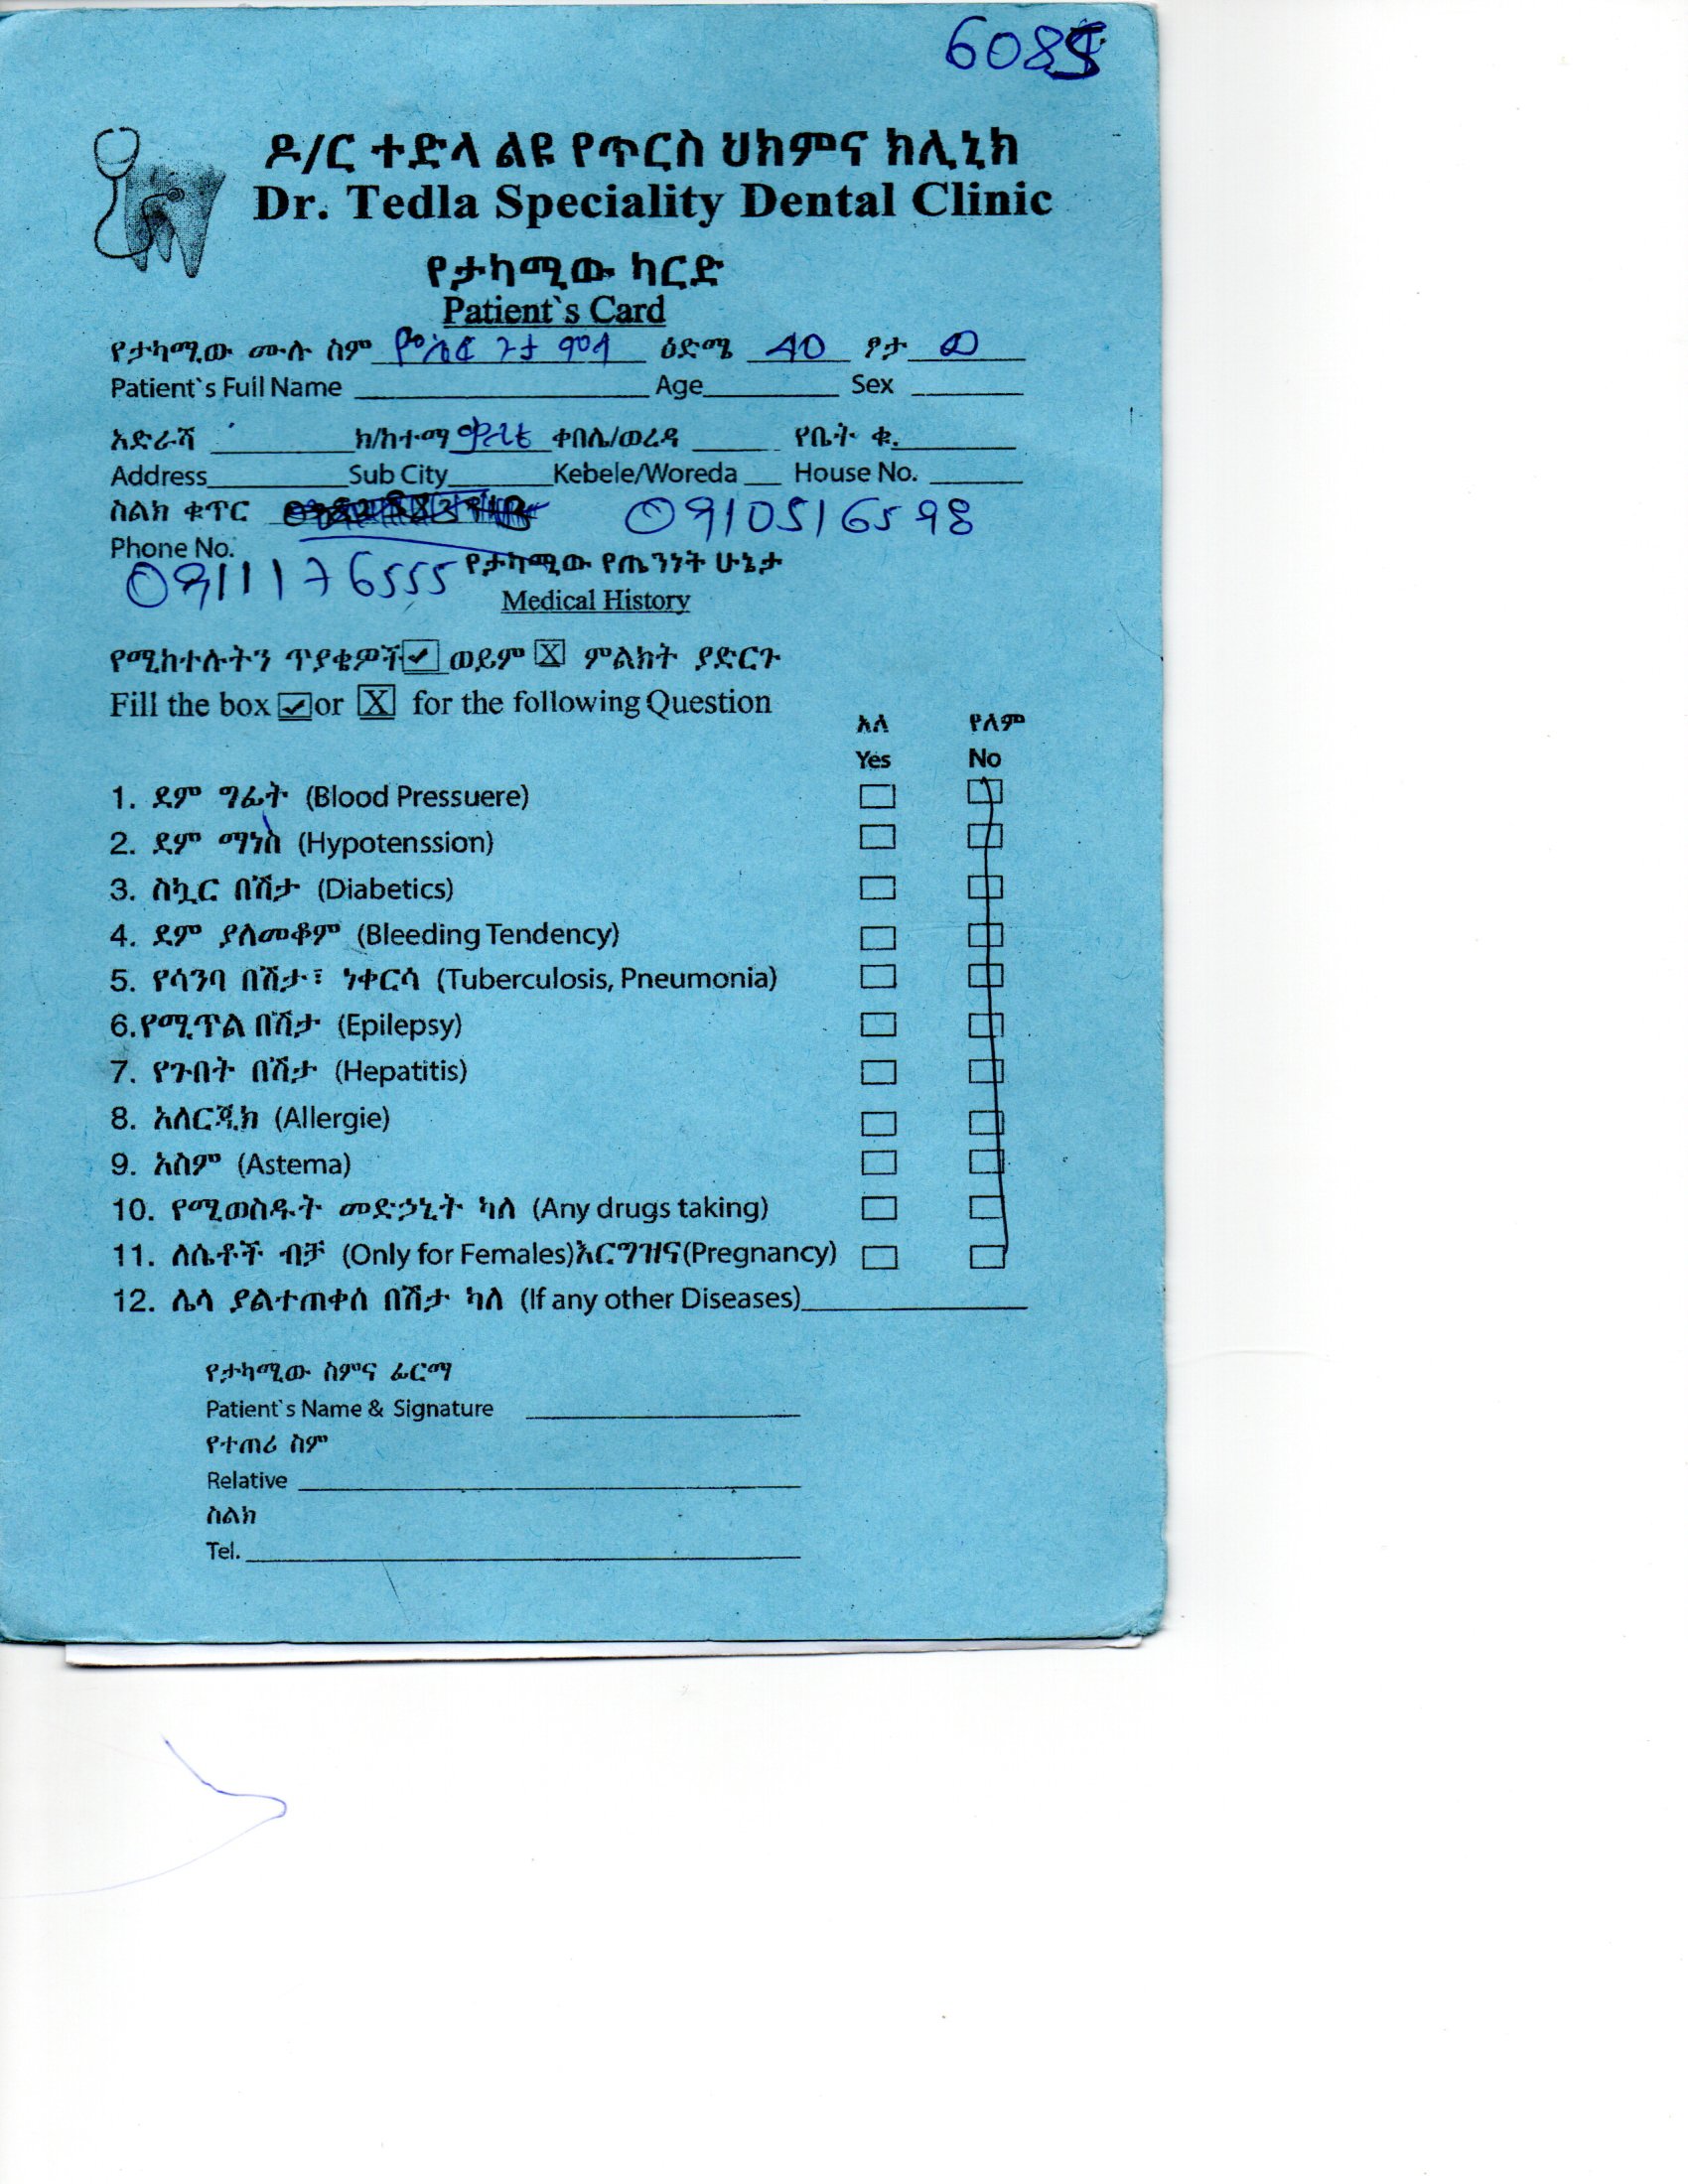 ዶ/ር ተድላ ልዩ የጥርስ ህክምና ክሊኒክ
Dr. Tedla Speciality Dental Clinic
የታካሚው ካርድ
Patient`s Card
የታካሚው ሙሉ ስም ዕድሜ 40 ፆታ ወ
Patient`s Full Name Age Sex
አድራሻ ክ/ከተማ ቀበሌ/ወረዳ የቤት ቁ.
Address Sub City Kebele/Woreda House No.
ስልክ ቁጥር 0910516598
Phone No.
0911176555 የታካሚው የጤንነት ሁኔታ
Medical History
የሚከተሉትን ጥያቄዎች ወይም X ምልክት ያድርጉ
Fill the box or X for the following Question
አለ የለም
Yes No
1. ደም ግፊት (Blood Pressuere)
2. ደም ማነስ (Hypotenssion)
3. ስኳር በሽታ (Diabetics)
4. ደም ያለመቆም (Bleeding Tendency)
5. የሳንባ በሽታ፣ ነቀርሳ (Tuberculosis, Pneumonia)
6.የሚጥል በሽታ (Epilepsy)
7. የጉበት በሽታ (Hepatitis)
8. አለርጂክ (Allergie)
9. አስም (Astema)
10. የሚወስዱት መድኃኒት ካለ (Any drugs taking)
11. ለሴቶች ብቻ (Only for Females)እርግዝና(Pregnancy)
12. ሌላ ያልተጠቀሰ በሽታ ካለ (If any other Diseases)
የታካሚው ስምና ፊርማ
Patient`s Name & Signature
የተጠሪ ስም
Relative
ስልክ
Tel.